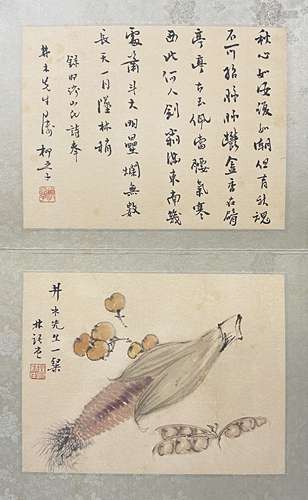 秋心如海復如潮但有秋魂
不可招漠漠鬱金香在臂
亭亭古玉佩當腰氣寒
西北何人劍聲滿東南幾
處簫斗大明星爛無數
長天一月墜林梢
錄
山民詩奉
井立先生
柳亞子
井立先生一粲
林